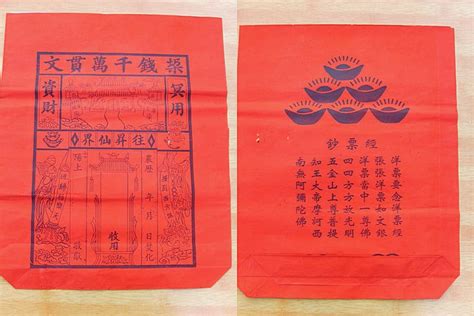 錢千萬貫文
冥用
資財
往昇仙界
年 月 日焚化
收用
陽上
鈔票經
洋票要念洋票經
張張洋票如文銀
洋票當中一尊佛
四四方方放光明
五金山上尊菩提
知王大帝摩河西
南無阿彌陀佛